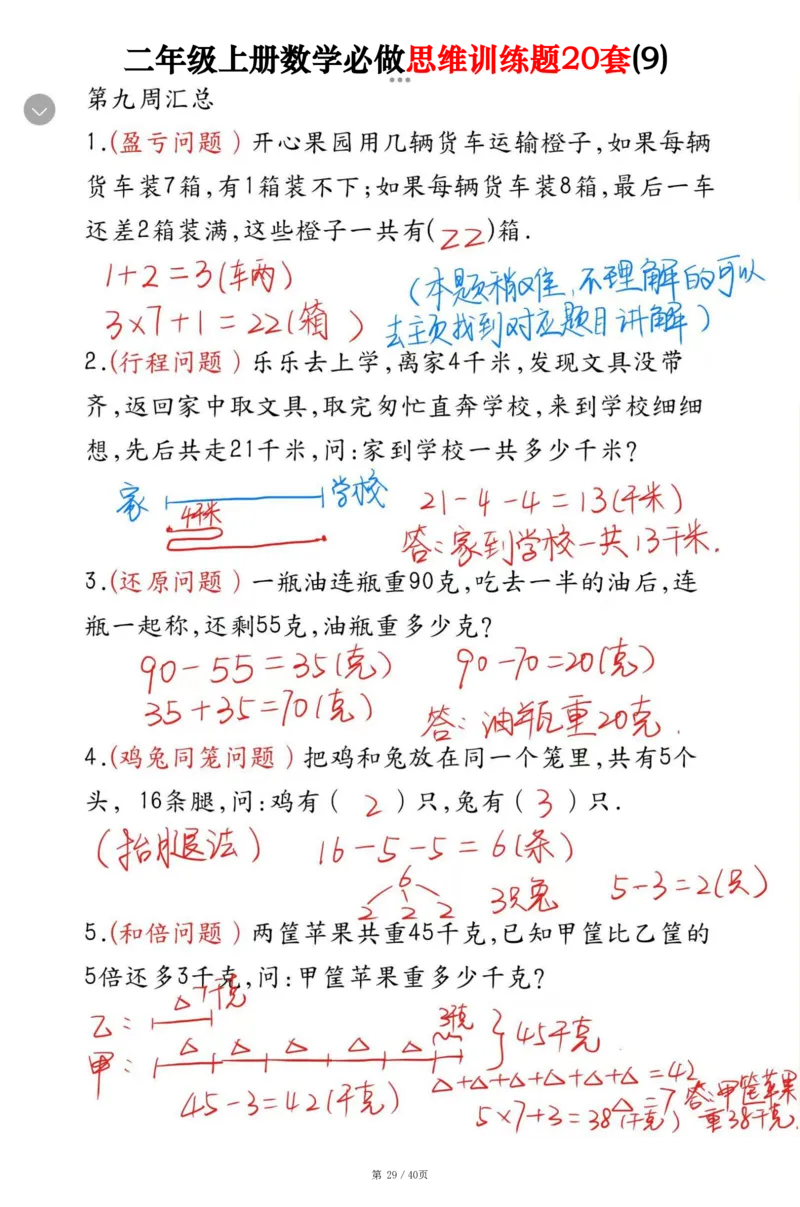 二年级上册数学必做思维训练题20套(9)
第九周汇总
1.(盈亏问题)开心果园用几辆货车运输橙子,如果每辆
货车装7箱,有1箱装不下;如果每辆货车装8箱,最后一车
还差2箱装满,这些橙子一共有(22)箱.
1+2=3(车两)
(本题稍难,不理解的可以
3×7+1=22(箱)
去主页找到对应题目讲解)
2.(行程问题)乐乐去上学,离家4千米,发现文具没带
齐,返回家中取文具,取完匆忙直奔学校,来到学校细细
想,先后共走21千米,问:家到学校一共多少千米?
家 学校
4千米
21-4-4=13(千米)
答:家到学校一共13千米.
3.(还原问题)一瓶油连瓶重90克,吃去一半的油后,连
瓶一起称,还剩55克,油瓶重多少克?
90-55=35(克) 90-70=20(克)
35+35=70(克) 答:油瓶重20克.
4.(鸡兔同笼问题)把鸡和兔放在同一个笼里,共有5个
头,16条腿,问:鸡有(2)只,兔有(3)只.
(抬腿法) 16-5-5=6(条)
6
2 2 2 3只兔 5-3=2(只)
5.(和倍问题)两筐苹果共重45千克,已知甲筐比乙筐的
5倍还多3千克,问:甲筐苹果重多少千克?
△7千克
乙:
3千克
甲: △ △ △ △ △ }45千克
45-3=42(千克)
△+△+△+△+△+△=42
△=7
5×7+3=38(千克)
答:甲筐苹果
重38千克.
第 29 / 40页